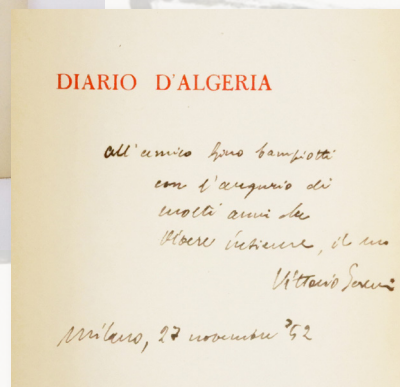 DIARIO D'ALGERIA
all'amico Gino
con l'augurio di
molti anni da
vivere insieme, il suo
Vittorio Sereni
Milano, 27 novembre '52